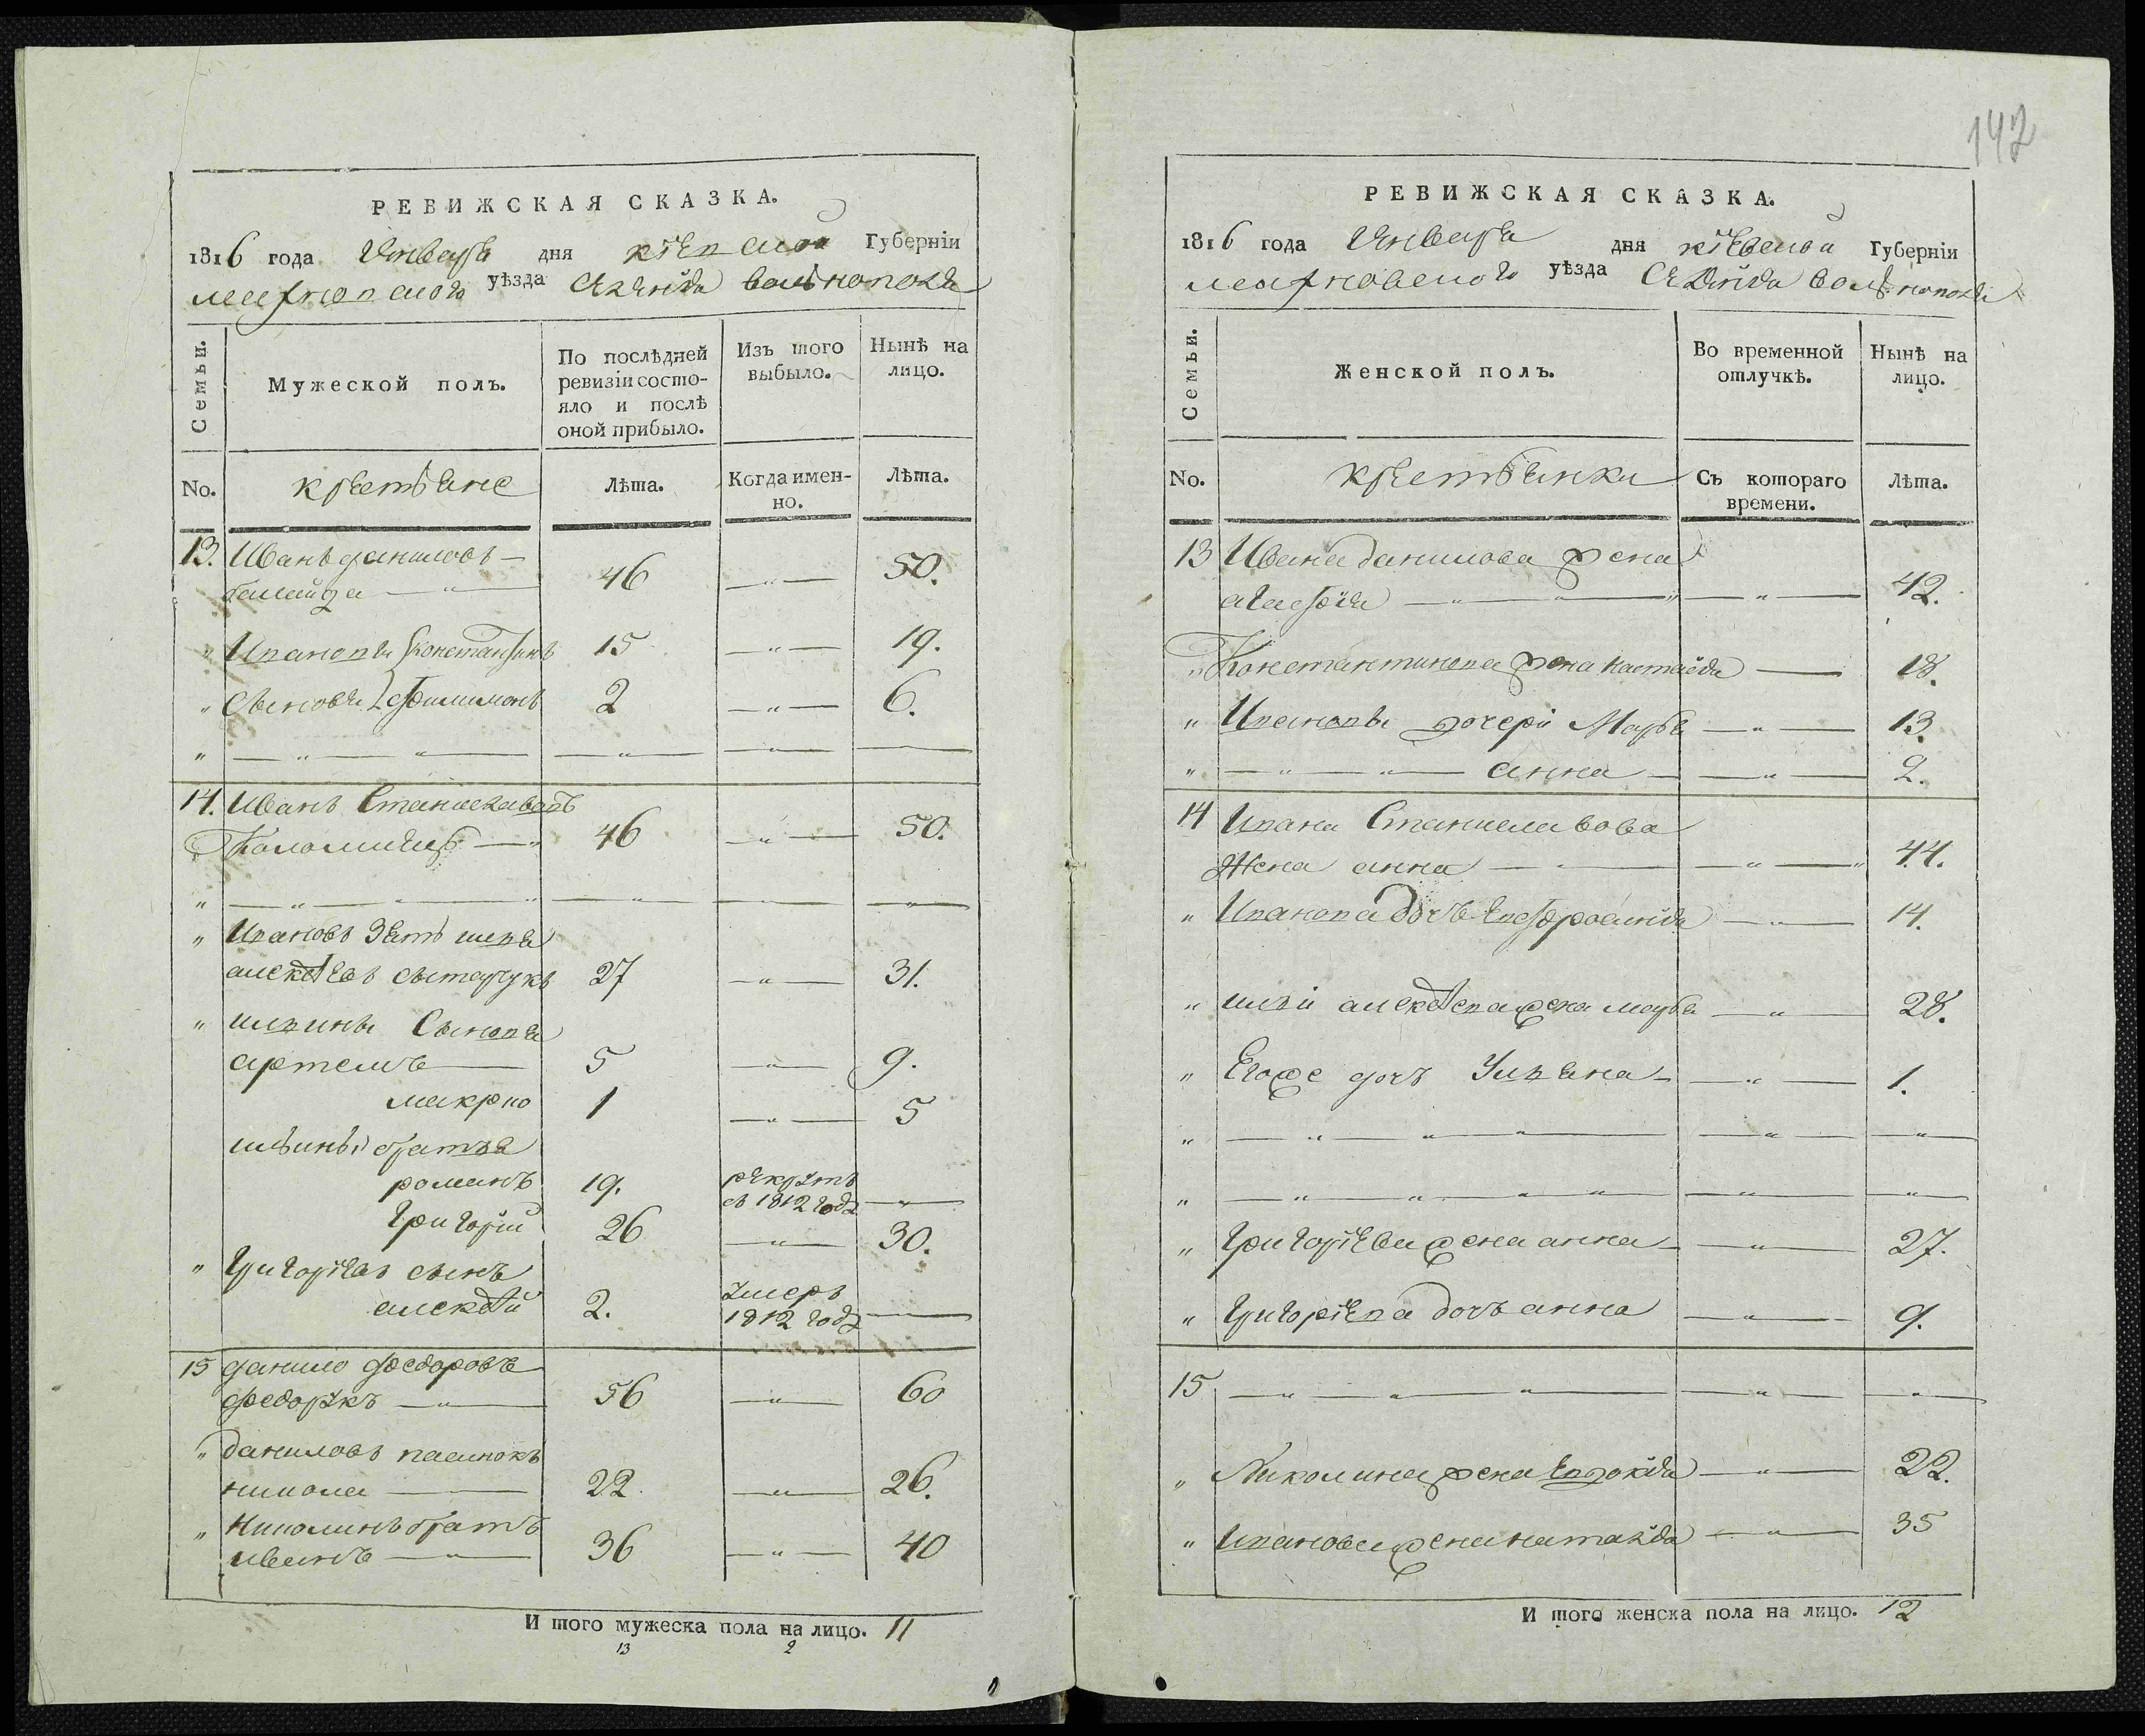 РЕВИЖСКАЯ СКАЗКА.
1816 года Января дня Кіевской Губерніи
уѣзда
Семьи.
Мужеской полъ.
По послѣдней ревизіи состояло и послѣ оной прибыло.
Изъ того выбыло.
Нынѣ на лицо.
No.
крестьяне
Лѣта.
Когда именно.
Лѣта.
13. Иванъ даниловъ —
46 — „ — 50.
„ Ивановы Константинъ 15 — „ — 19.
„ Сыновья Филимонъ 2 — „ — 6.
„ — „ — „ — — „ — — „ — —
14. Иванъ Станиславовъ
46 — „ — 50.
„ — „ — „ — — „ — — — „ —
„ Ивановъ Зять илья
алексѣевъ 27 — „ — 31.
„ ильины Сыновья
артемъ 5 — „ — 9.
макаро 1 — „ — 5
ильины братья
романъ 19. рекрутъ
въ 1812 года — „ —
Григорій 26 — „ — 30.
„ Григоріевъ сынъ
алексѣй 2. умеръ
1812 года —
15 данило федоровъ
федорукъ — „ — 56 — „ — 60
„ даниловъ пасинокъ
никола — 22. — „ — 26.
„ Николинъ братъ
иванъ — „ — 36 — „ — 40
И того мужеска пола на лицо. 11
13 2
142
РЕВИЖСКАЯ СКАЗКА.
1816 года Января дня Кіевской Губерніи
уѣзда
Семьи.
Женской полъ.
Во временной отлучкѣ.
Нынѣ на лицо.
No.
крестьянки
Съ котораго времени.
Лѣта.
13 Ивана данилова жена
агафія — „ — „ — „ — „ — 42.
„ Константинова жена — 18.
„ Ивановы дочери Марья — „ — 13.
„ — „ — „ — анна — — „ — 2.
14 Ивана Станиславова
Жена анна — „ — — „ — „ 44.
„ Иванова дочь — „ — 14.
„ ильи алексѣева жена марья — „ — 28.
„ Егоже дочь Ульяна — — „ — 1.
„ — „ — „ — „ — — „ — — „ —
„ — „ — „ — „ — „ — — „ — — „ —
„ Григоріева жена анна — — „ — 27.
„ Григоріева дочь анна — „ — 9.
15 — „ — „ — „ — — „ — — „ —
„ Николина жена Евдокія — „ — 22.
„ Иванова жена наталія — „ — 35
И того женска пола на лицо. 12